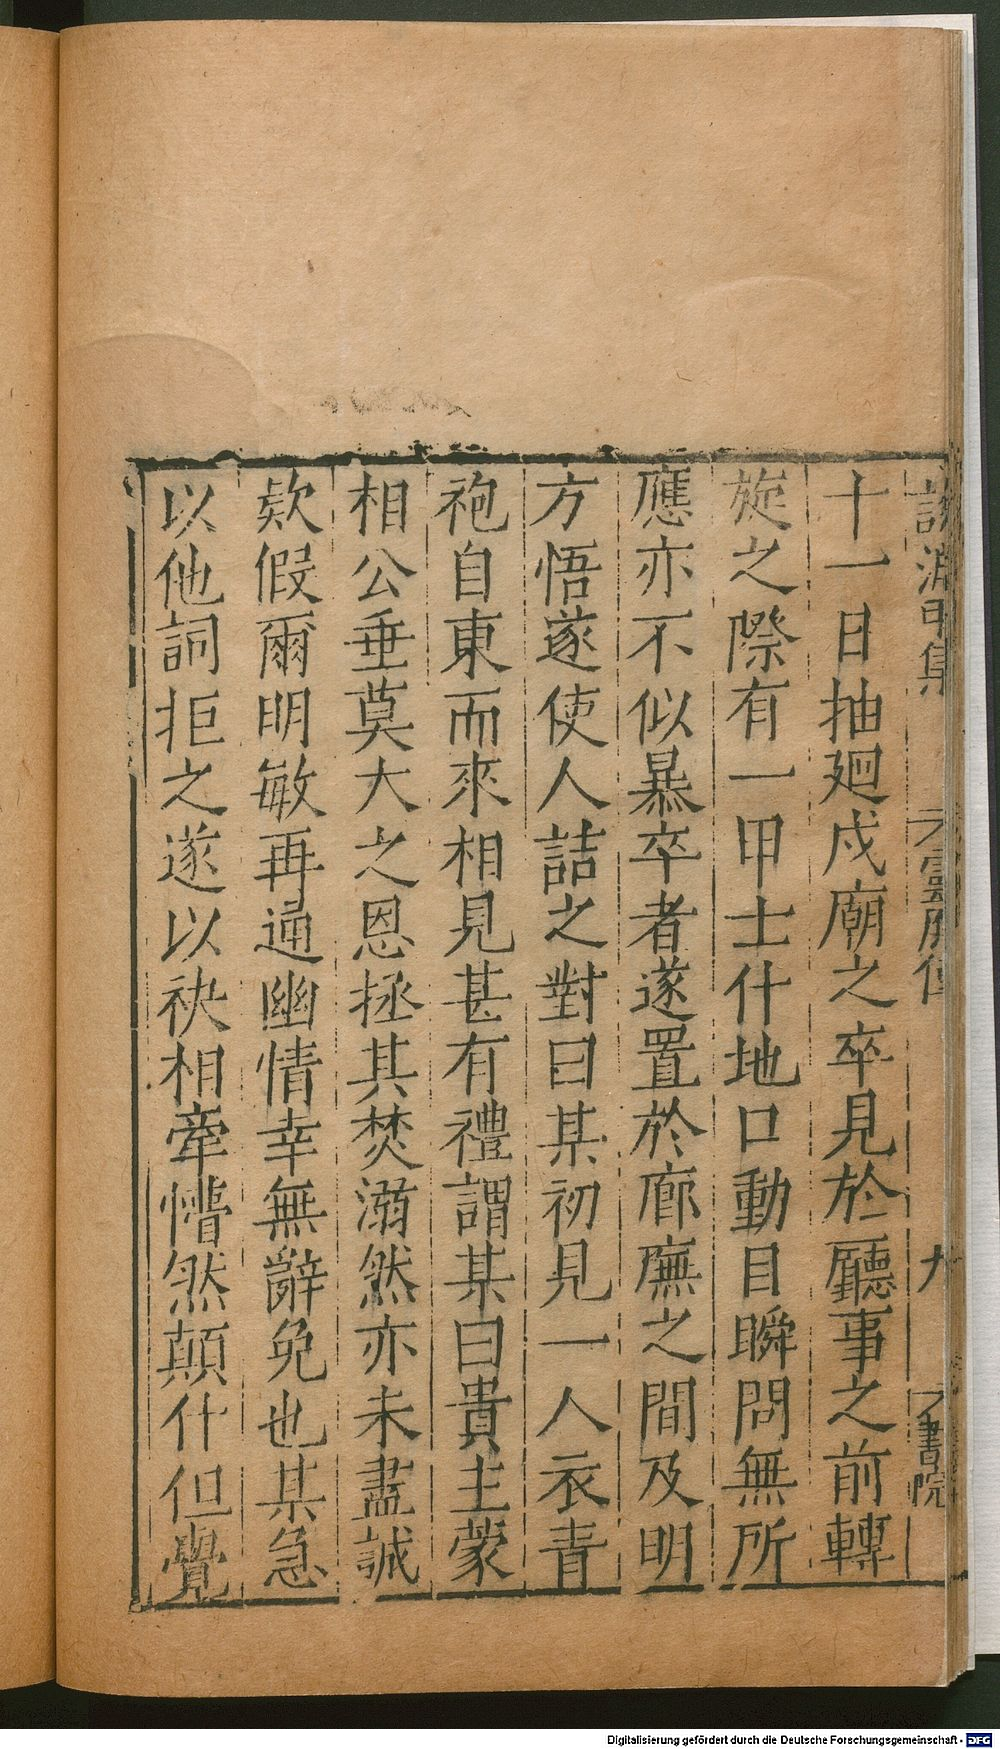 說淵甲集 靈應傳 九 書院
十一日抽廻戍廟之卒見於廳事之前轉
旋之際有一甲士仆地口動目瞬問無所
應亦不似暴卒者遂置於廊廡之間及明
方悟遂使人詰之對曰某初見一人衣青
袍自東而來相見甚有禮謂某曰貴主蒙
相公垂莫大之恩拯其焚溺然亦未盡誠
欵假爾明敏再通幽情幸無辭免也某急
以他詞拒之遂以袂相牽懵然顛仆但覺
Digitalisierung gefördert durch die Deutsche Forschungsgemeinschaft - DFG